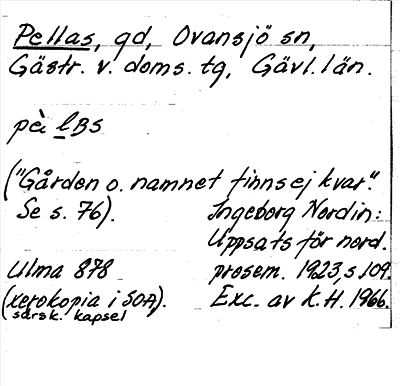 Pellas, gd, Ovansjö sn,
Gästr. v. doms. tg, Gävl. län.
pèˎ lBs
("Gården o. namnet finns ej kvar".
Se s. 76). Ingeborg Nordin:
Uppsats för nord.
Ulma 878 prosem. 1923, s. 109.
(xerokopia i SOA). Exc. av K.H. 1966.
(särsk. kapsel